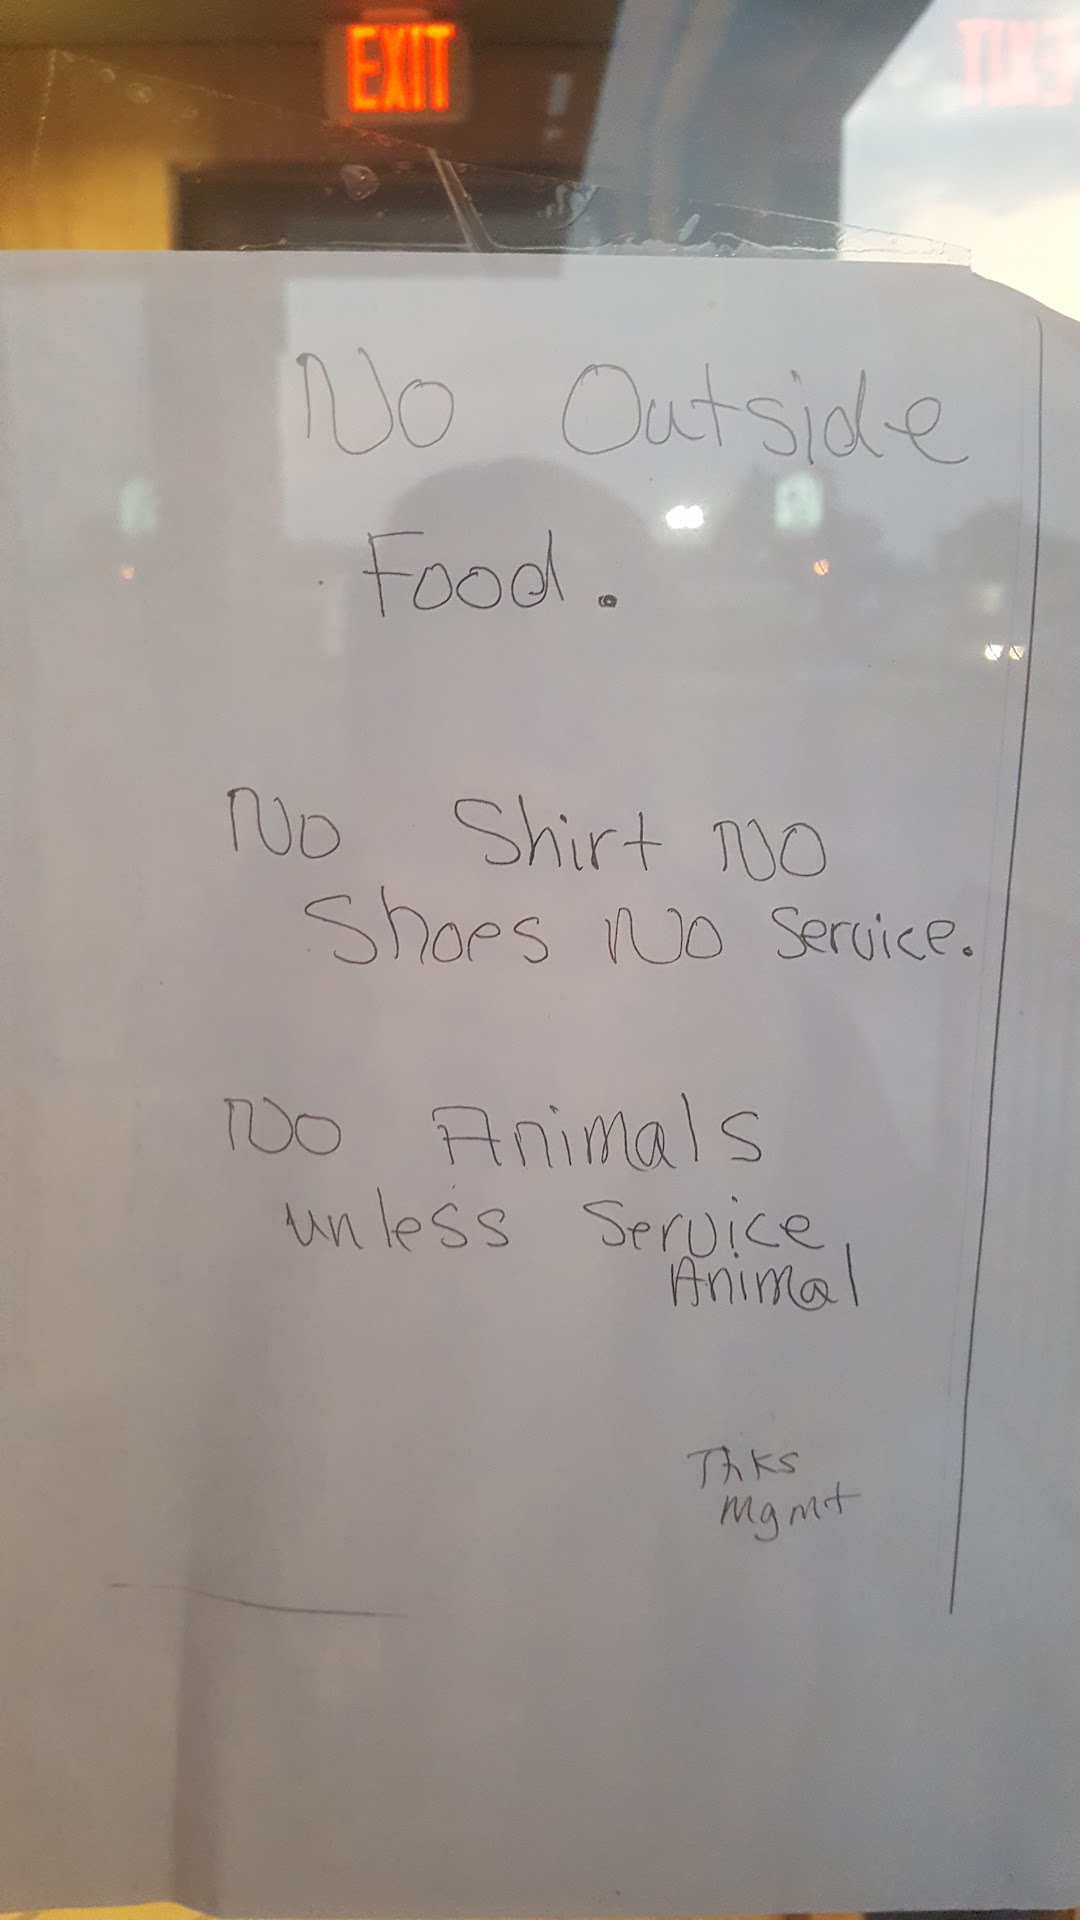 EXIT
EXIT
No Outside
Food.
No Shirt No
Shoes No Service.
No Animals
unless Service
Animal
Thks
Mgmt